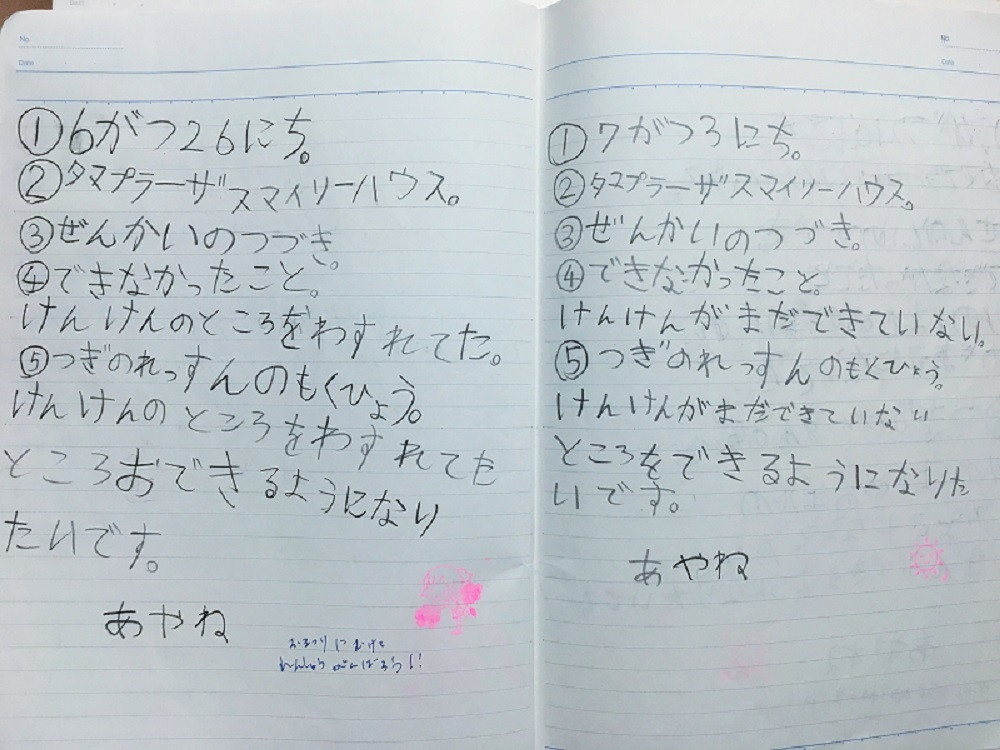 No.
Date
①6がつ26にち。
②タマプラーザスマイリーハウス。
③ぜんかいのつづき。
④できなかったこと。
けんけんのところをわすれてた。
⑤つぎのれっすんのもくひょう。
けんけんのところをわすれてた
ところおできるようになり
たいです。
あやね
にむけて
れんしゅうがんばろう!!
No.
Date
①7がつ3にち。
②タマプラーザスマイリーハウス。
③ぜんかいのつづき。
④できなかったこと。
けんけんがまだできていない。
⑤つぎのれっすんのもくひょう。
けんけんがまだできていない
ところをできるようになりた
いです。
あやね